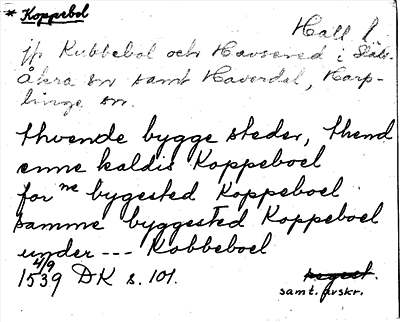 * Koppebol
Hall l
jfr Kubbebol och Havsered i Slät-
åkra sn samt Haverdal, Harp-
linge sn.
thvende bygge steder, thend
enne kaldis Koppeboel
for ne bygested Koppeboel
samme byggested Koppeboel
under --- Kobbeboel
4/9
1539 DK s. 101.
samt. avskr.